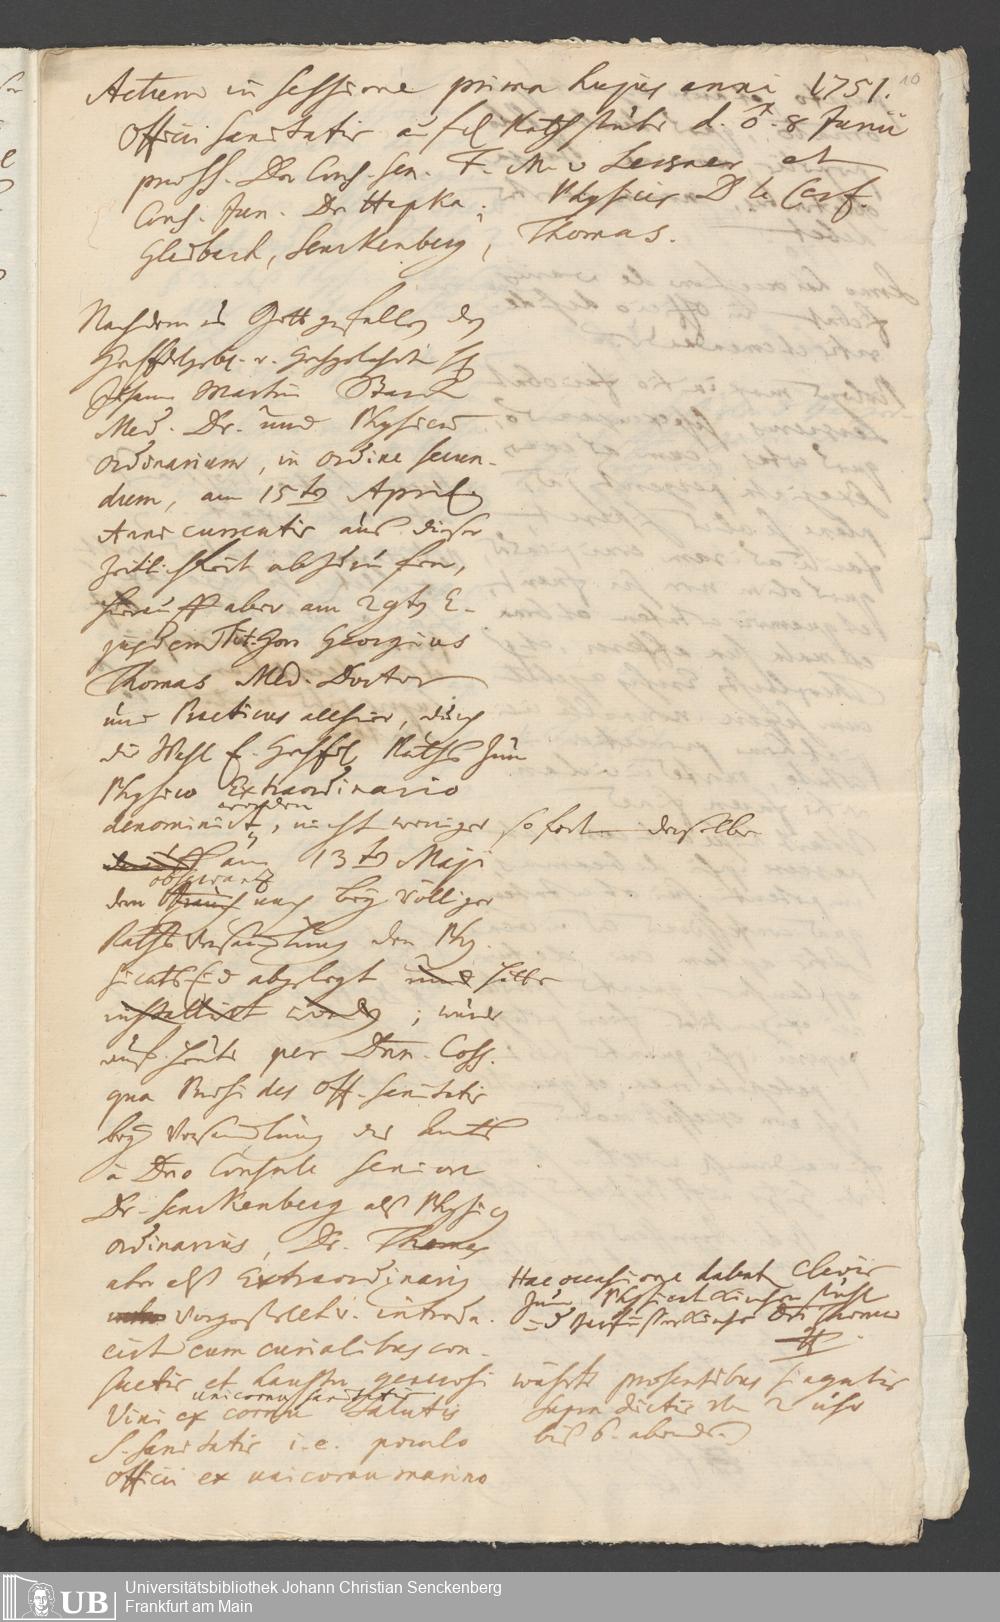 10
Actum in Sessione prima hujus anni 1751.
Officii Sanitatis auf der Rathstube d. 8 Junii
præss. Dno Cons. Sen. F. M. v Lersner et
Cons. Jun. Dr Hupka; Physicis D le Cerf.
Gladbach, Senckenberg, Thomas.
Nachdem es Gott gefallen den
Johann Martin
Med. Dr. und Physicum
Ordinarium, in ordine secun-
dum, am 15ten April
Anni currentis aus dieser
Zeitlichkeit abzufordern,
hierauff aber am 29ten E-
jusdem Tit. Herr Georgius
Thomas Med. Doctor
und Practicus allhier, durch
die Wahl Raths zum
Physico Extraordinario
worden
denominirt, nicht weniger sofort derselbe
am 13ten Maji
observanz
dem Brauch nach bey völliger
Raths Versamlung den Phy-
sicats Eid abgelegt und hatte
installirt worden; wurde
auf heute per Dnn. Coss.
qua des Off. Sanitatis
bey Versamlung des Amts
a Dno Consule Seniore
Dr. Senckenberg als Physicus
ordinarius, Dr. Thomas
aber als Extraordinarius
vorgestellt u. introdu-
cirt cum curialibus con-
suetis et haustu generosi
unicornu sanitatis
Vini ex cornu salutis
S. Sanitatis i.e. poculo
Officii ex unicornu marino
Hac occasione dabat
zum
währte præsentibus singulis
supra dictis von 2 Uhr
bis 6. abends.
UB Universitätsbibliothek Johann Christian Senckenberg
Frankfurt am Main